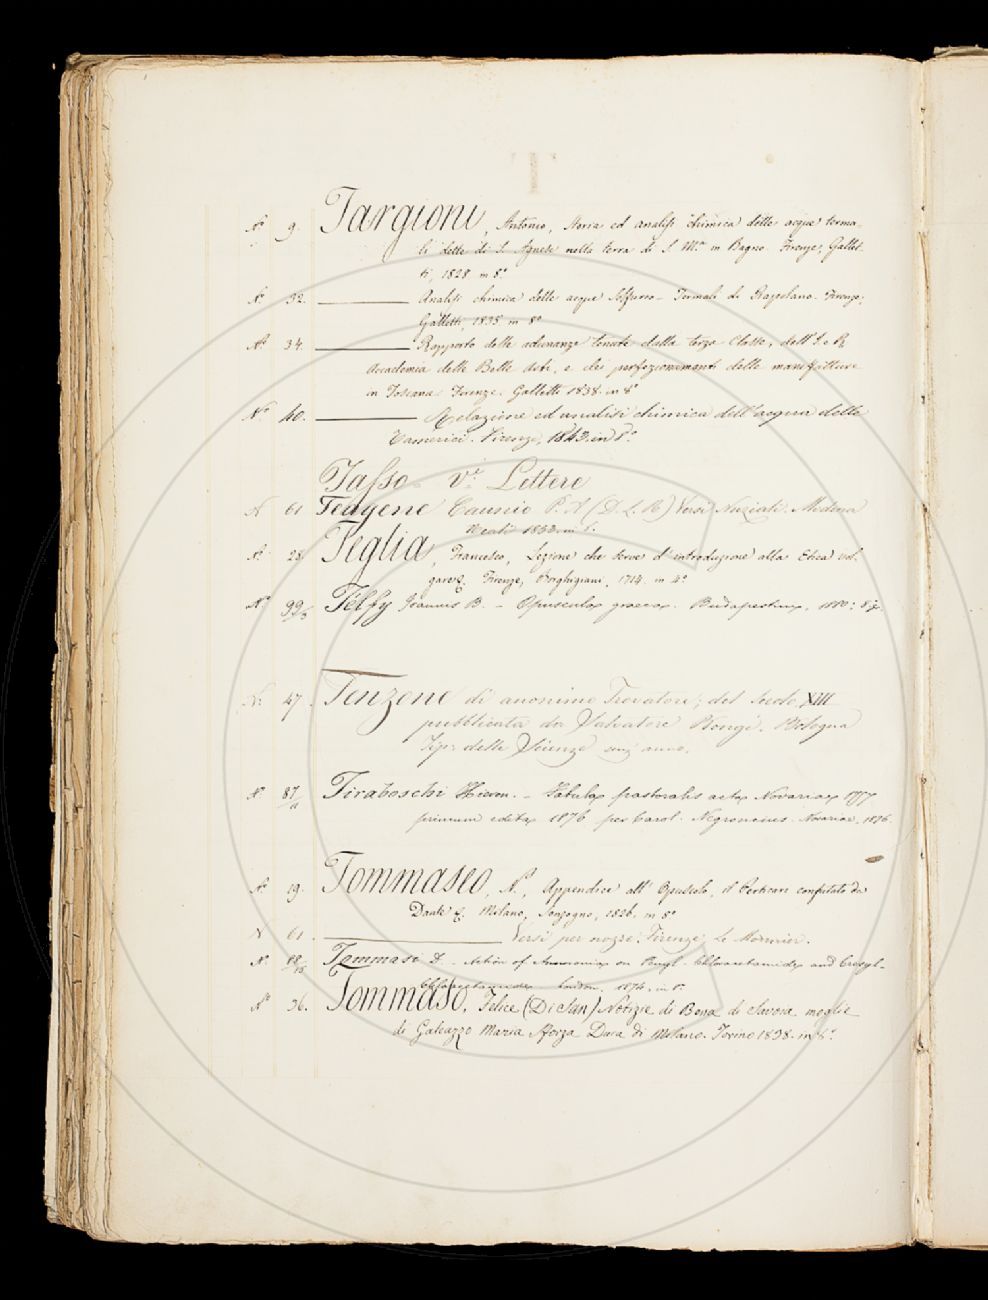 T
N.° 9. Targioni, Antonio, Storia ed analisi chimica delle acque terma-
li dette di S. Agnese nella terra di S. M.ª in Bagno. Firenze, Gallet-
ti, 1828 in 8.°
N.° 32. ——— Analisi chimica delle acque Solfureo-Termali di Rapolano. Firenze,
Galletti, 1835. in 8.°
N.° 34. ——— Rapporto delle adunanze tenute dalla terza Classe, dell'I. e R.
Accademia delle Belle Arti, e dei perfezionamenti delle manifatture
in Toscana. Firenze. Galletti 1838. in 8.°
N.° 40. ——— Relazione ed analisi chimica dell'acqua delle
Camerici. Firenze, 1843. in 8.°
Tasso. V.i Lettere
N 61 Teagene Caunio P. A. (D. L. R.) Versi Nuziali. Modena
Reali 1833. in 8.
N.° 28 Teglia, Francesco, Lezione che serve d'introduzione alla Etica vol-
gare &. Firenze, Borghigiani, 1714. in 4.°
N.° 99/3 Télfy Joannis B. - Opuscula graeca. Budapestini, 1880: 8.°
N.° 47. Tenzone di anonimo Trovatore, del Secolo XIII
pubblicata da Salvatore Bongi. Bologna
Tip: delle Scienze senz'anno.
N.° 87/11 Tiraboschi Hieron. - Fabula pastoralis acta Novariae 1777
primum edita 1876 per Carol. Negronius. Novariae, 1876.
N.° 19. Tommaseo, N.°, Appendice all'Opuscolo, il Perticari confutato da
Dante &. Milano, Sonzogno, 1826. in 8.°
N 61. ——— Versi per nozze. Firenze Le Monnier.
N.° 88/15 Tommasi D. - Action of Ammonia on Phenyl-Chloracetamide and Cresyl-
Chloracetamide London, 1874, in 8.°
N.° 36. Tommaso, Felice (Di San) Notizie di Bona di Savoia moglie
di Galeazzo Maria Sforza Duca di Milano. Torino 1838. in 8.°